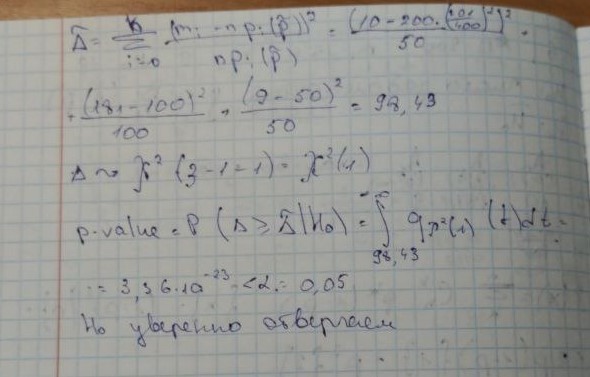 Δ̃ = Σ_{i=0}^{k} (m_i - np_i(p̃))² / np_i(p̃) = (10 - 200·(201/400)²)² / 50 +
+ (181 - 100)² / 100 + (9 - 50)² / 50 = 98,43
Δ ~ χ² (3 - 1 - 1) = χ²(1)
p-value = P (Δ ≥ Δ̃ | H₀) = ∫_{98,43}^{+∞} q_{χ²(1)} (t) dt =
= 3,36·10⁻²³ < α = 0,05
H₀ уверенно отвергаем